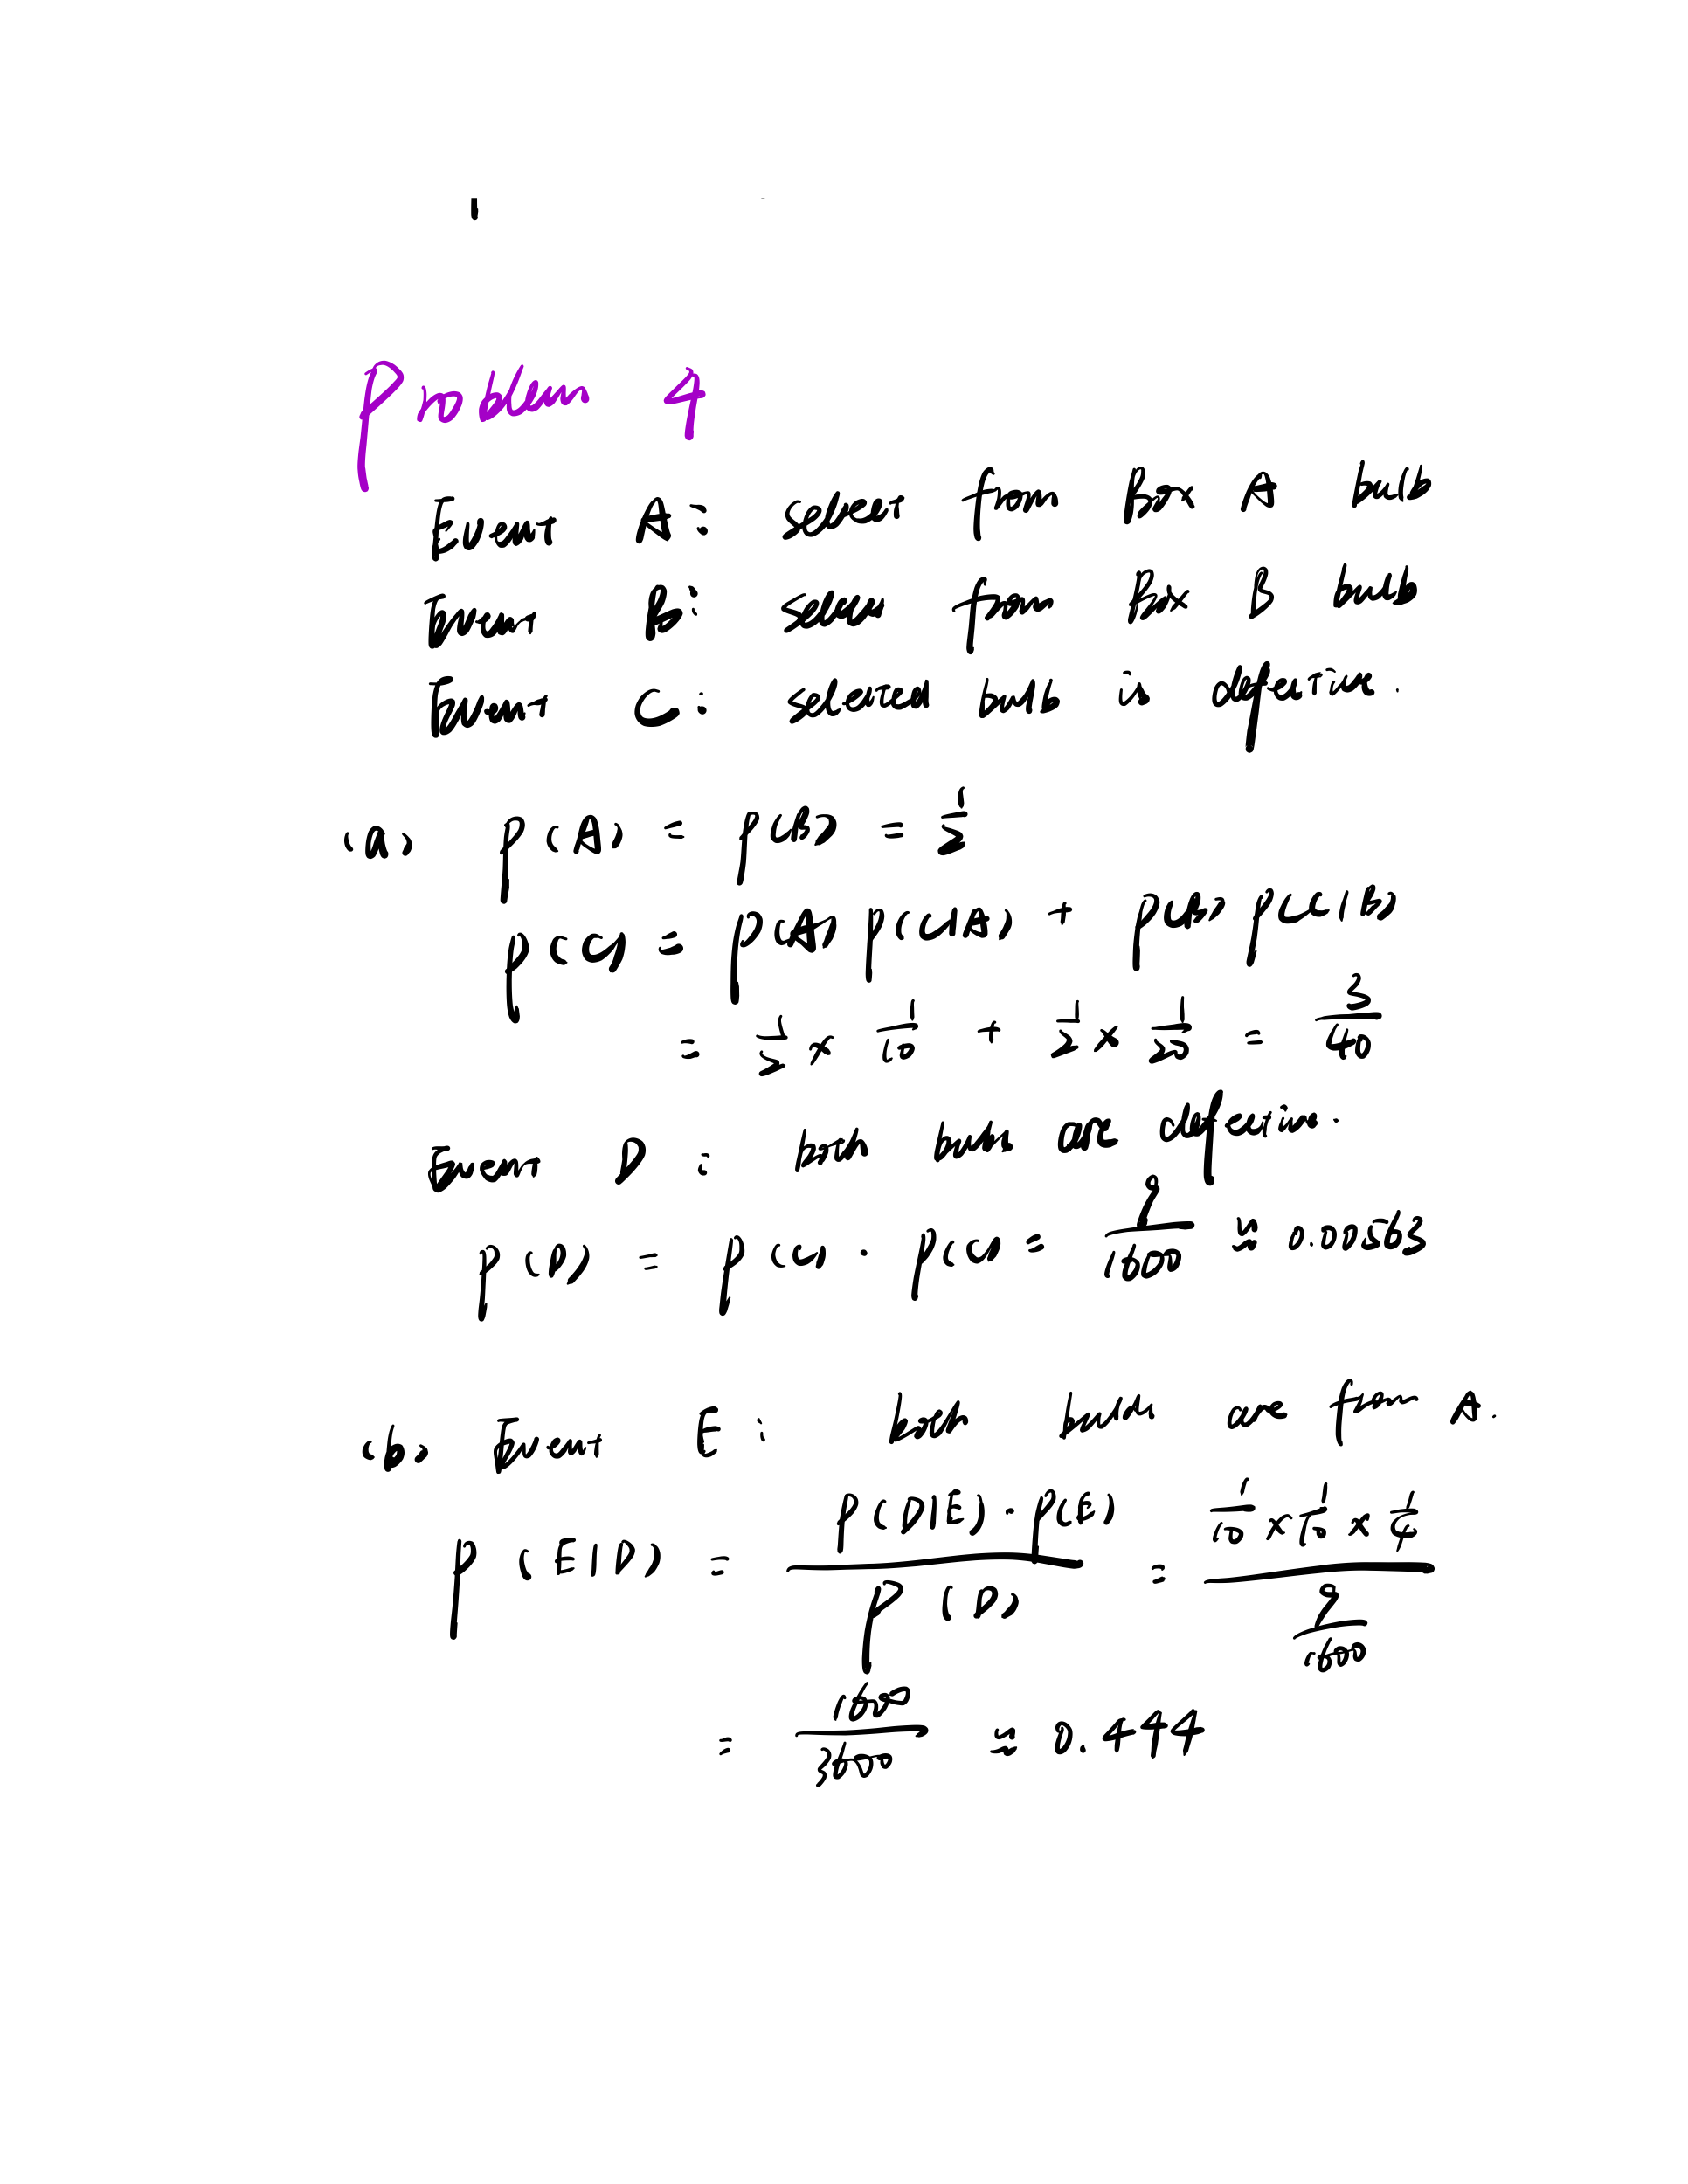 Problem 4
Event A: select from Box A bulb
Event B: select from Box B bulb
Event C: selected bulb is defective.
(a) P(A) = P(B) = 1/2
P(C) = P(A) P(C|A) + P(B) P(C|B)
= 1/2 × 1/10 + 1/2 × 1/20 = 3/40
Event D: both bulbs are defective.
P(D) = P(C) · P(C) = 9/1600 ≈ 0.00563
(b) Event E: both bulbs are from A.
P(E|D) = P(D|E)·P(E) / P(D) = (1/10 × 1/10 × 1/4) / (9/1600)
= 1600/3600 ≈ 0.444